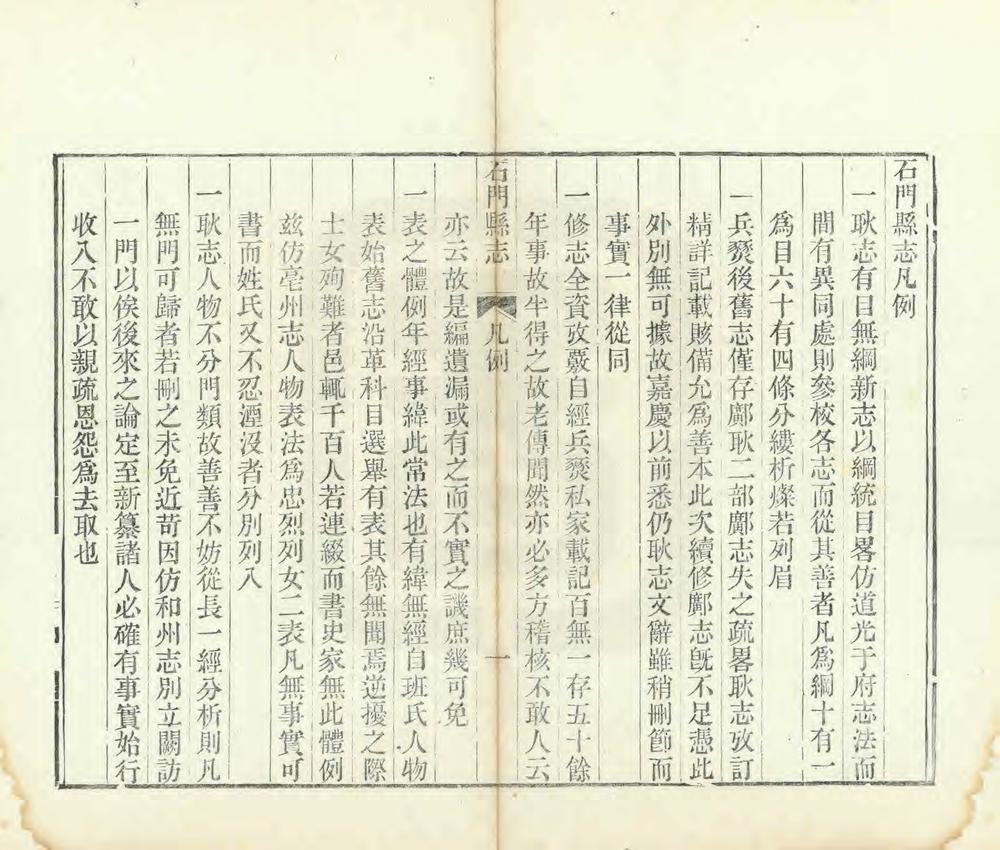 石門縣志凡例
一耿志有目無綱新志以綱統目畧仿道光于府志法而
間有異同處則參校各志而從其善者凡爲綱十有一
爲目六十有四條分縷析燦若列眉
一兵燹後舊志僅存鄺耿二部鄺志失之疏畧耿志攷訂
精詳記載賅備允爲善本此次續修鄺志旣不足憑此
外別無可據故嘉慶以前悉仍耿志文辭雖稍刪節而
事實一律從同
一修志全資攷覈自經兵燹私家載記百無一存五十餘
年事故半得之故老傳聞然亦必多方稽核不敢人云
石門縣志 凡例 一
亦云故是編遺漏或有之而不實之譏庶幾可免
一表之體例年經事緯此常法也有緯無經自班氏人物
表始舊志沿革科目選舉有表其餘無聞焉逆擾之際
士女殉難者邑輒千百人若連綴而書史家無此體例
茲仿亳州志人物表法爲忠烈列女二表凡無事實可
書而姓氏又不忍湮沒者分別列入
一耿志人物不分門類故善善不妨從長一經分析則凡
無門可歸者若刪之未免近苛因仿和州志別立闕訪
一門以俟後來之論定至新纂諸人必確有事實始行
收入不敢以親疏恩怨爲去取也